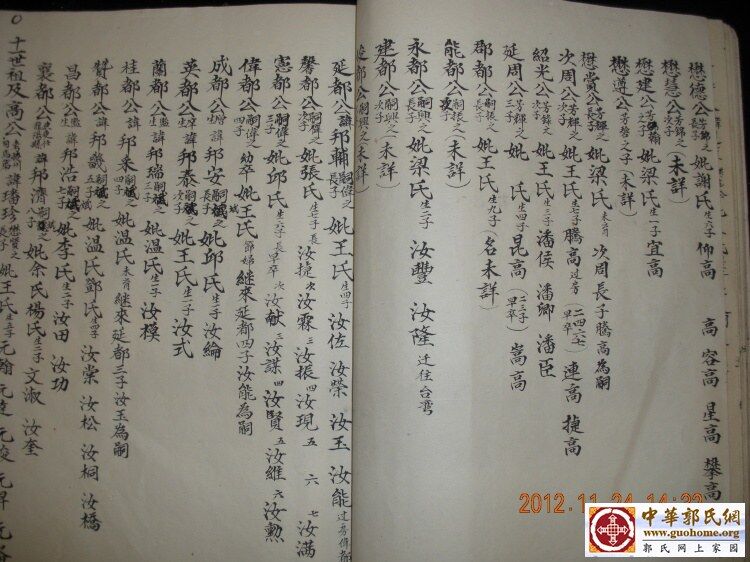 懋德公芳錦之長子妣謝氏生六子仰高 高 容高 星高 攀高
懋慧公芳錦之次子(未詳)
懋建公芳翰之子妣梁氏生一子宜高
懋遵公芳聲之子(未詳)
懋賞公芳輝之長子妣梁氏未育 次周長子騰高為嗣
次周公芳輝之次子妣王氏生七子騰高過房(二四六七早卒)連高 捷高
紹光公芳輝之次子妣王氏生三子潘侯 潘卿 潘臣
延周公芳輝之三子妣 氏生四子昆高(二三子早卒)嵩高
郡都公嗣振之長子妣王氏生九子(名未詳)
能都公嗣振之次子(未詳)
永都公嗣興之長子妣梁氏生二子 汝豐 汝隆 迁住台灣
建都公嗣興之次子(未詳)
達都公嗣興之三子(未詳)
延都公諱邦輔嗣偉之長子妣王氏生四子 汝佐 汝榮 汝玉 汝能過房偉都
馨都公嗣偉之次子妣張氏生七子長汝捷 次汝霖 三汝振 四汝現 五 六 七汝滿
憲都公諱嗣偉之三子妣邱氏生六子長早卒 次汝献 三汝謀 四汝賢 五汝維 六汝勲
偉都公嗣偉之四子幼卒妣王氏節婦 繼來延都四子汝能為嗣
成都公諱邦安嗣斌之長子妣邱氏生一子 汝綸
英都公諱邦泰嗣斌之次子妣王氏生一子 汝式
蘭都公諱邦瑞嗣斌之三子妣溫氏生一子 汝模
桂都公諱邦來嗣斌之四子妣溫氏未育 繼來延都三子汝玉為嗣
贊都公諱邦 嗣斌之五子妣溫氏鄧氏生四子 汝崇 汝松 汝桐 汝橋
昌都公諱邦浩嗣斌之七子妣李氏生二子 汝田 汝功
襄都公諱邦濟嗣 之 子妣余氏楊氏生二子 文淑 汝奎
十一世祖及高公諱璠珍懋賢之長子妣王氏生五子元翰 元達 元俊 元昇 元
2012.11.24 14:22
中華郭氏網
www.guohome.org
郭氏网上家园